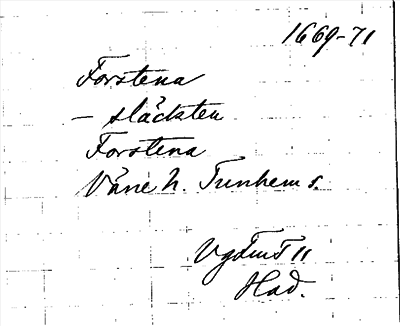 1669-71
Forstena
- släckten
Forstena
Väne h. Tunhem s.
VgFmT II
Had.